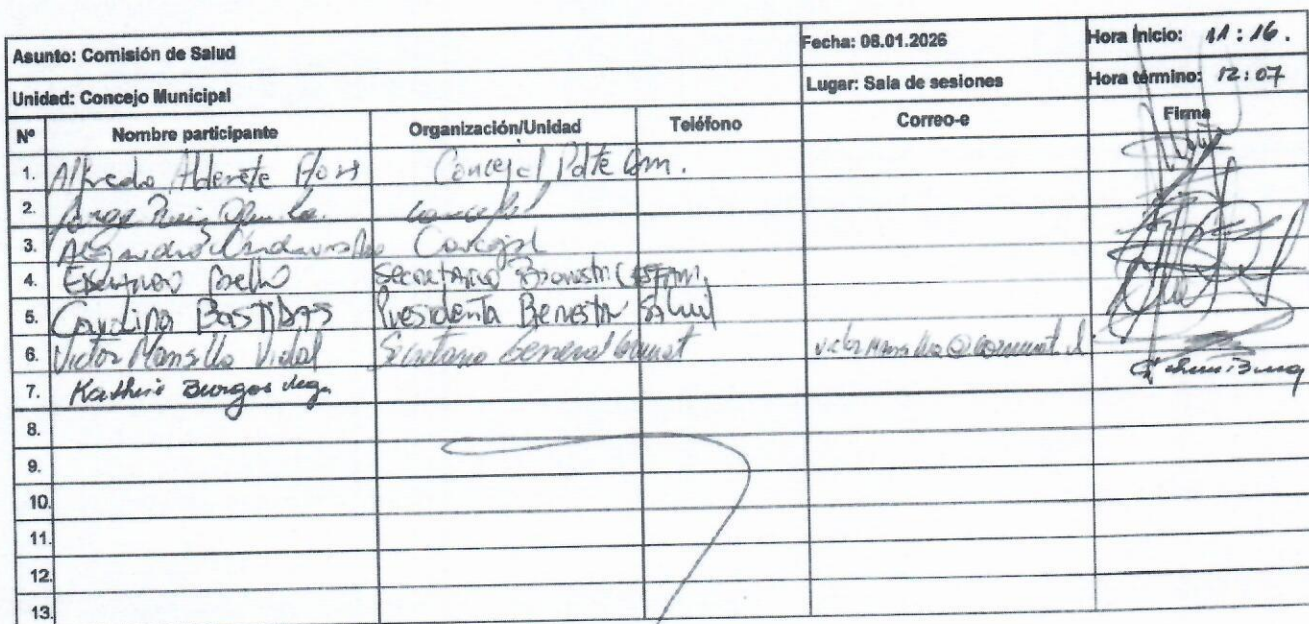 Asunto: Comisión de Salud Fecha: 08.01.2026 Hora Inicio: 11:16.
Unidad: Concejo Municipal Lugar: Sala de sesiones Hora término: 12:07
Nº Nombre participante Organización/Unidad Teléfono Correo-e Firma
1. Alfredo Alderete Concejal Pdte Com.
2. Jorge Ruiz Concejal
3. Alejandro Concejal
4. Coello Secretario
5. Carolina Bastidas Presidenta Benestar Salud
6. Victor Mansilla Vidal Secretario General
7. Burgos Vega
8.
9.
10.
11.
12.
13.